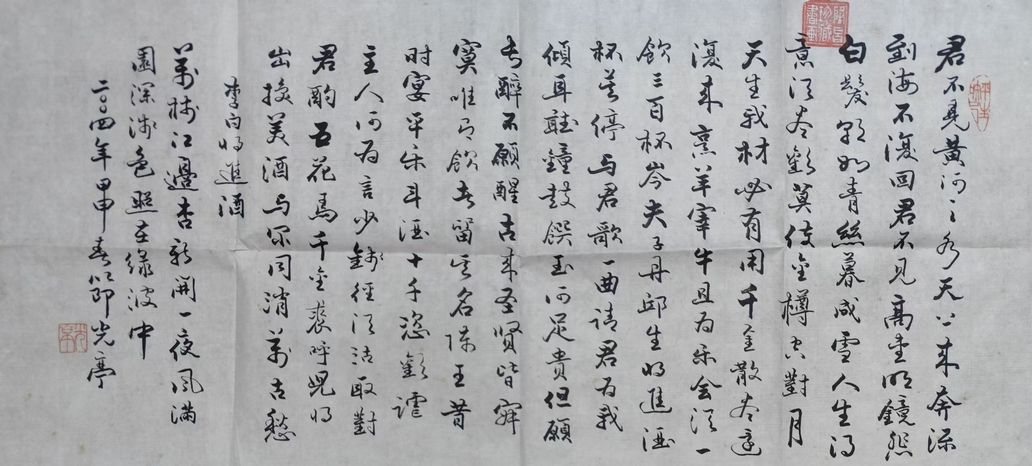 君不見黃河之水天上來奔流
到海不復回君不見高堂明鏡悲
白髮朝如青絲暮成雪人生得
意須盡歡莫使金樽空對月
天生我材必有用千金散盡還
復來烹羊宰牛且為樂會須一
飲三百杯岑夫子丹邱生將進酒
杯莫停與君歌一曲請君為我
傾耳聽鐘鼓饌玉何足貴但願
長醉不願醒古來圣贤皆寂
寞唯有飲者留其名陳王昔
时宴平樂斗酒十千恣歡謔
主人何為言少錢徑須沽取對
君酌五花馬千金裘呼兒將
出換美酒与尔同消萬古愁
李白將進酒
萬樹江邊杏新開一夜風滿
園深淺色照在綠波中
二〇〇四年甲申春光亭